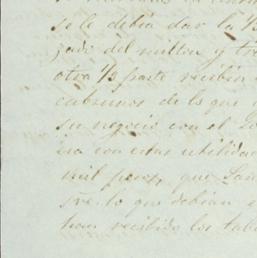 se le debia dar la 1/3
zado del millon y tre
otra 1/3 parte reciben
cabremos de lo que
su negocio con el
ina con estas utilidad
mil pesos, que
lo que debian
han recibido los